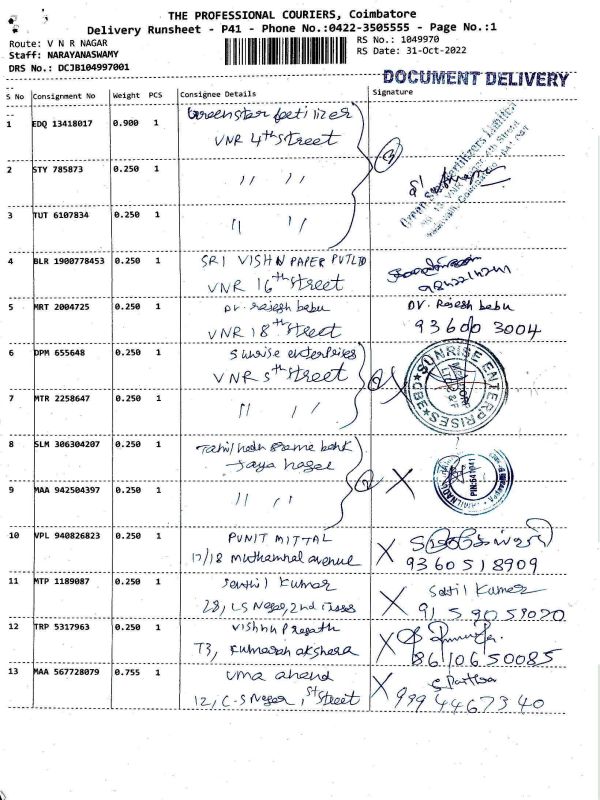 THE PROFESSIONAL COURIERS, Coimbatore
Delivery Runsheet - P41 - Phone No.:0422-3505555 - Page No.:1
Route: V N R NAGAR
RS No.: 1049970
Staff: NARAYANASWAMY
RS Date: 31-Oct-2022
DRS No.: DCJB104997001
DOCUMENT DELIVERY
S No Consignment No Weight PCS Consignee Details Signature
1 EDQ 13418017 0.900 1 Greenstar fertilizer
VNR 4th street
3
2 STY 785873 0.250 1 " "
3 TUT 6107834 0.250 1 " "
4 BLR 1900778453 0.250 1 SRI VISHN PAPER PVT LTD
VNR 16th street
5 MRT 2004725 0.250 1 Dr. Rajesh babu Dr. Rajesh babu
VNR 18th street 93600 3004
6 DPM 655648 0.250 1 Sunrise enterprises
VNR 5th street
SUNRISE ENTERPRISES
CBE
7 MTR 2258647 0.250 1 " "
8 SLM 306304207 0.250 1 Tamilnadu grama bank
Jaya nagar
2 X
9 MAA 942504397 0.250 1 " "
10 VPL 940826823 0.250 1 PUNIT MITTAL
17/18 muthammal avenue X 9360518909
11 MTP 1189087 0.250 1 Senthil Kumar
28, LS Nagar, 2nd cross X 
12 TRP 5317963 0.250 1 Vishnu Prasath
T3, Kumaran akshera X 8610650085
13 MAA 567728079 0.755 1 uma anand
12, C-S Nagar, 1st street X 9994467340